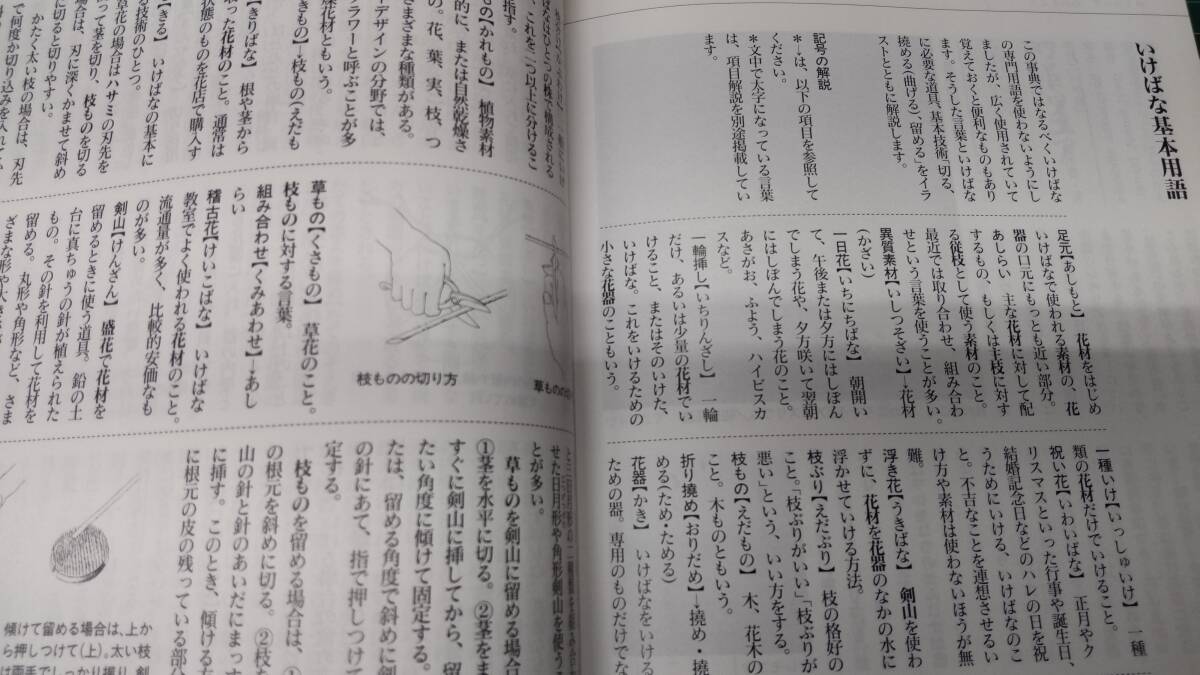 いけばな基本用語
この事典ではなるべくいけばな
の専門用語を使わないようにし
ましたが、広く使用されていて
覚えておくと便利なものもあり
ます。そうした言葉といけばな
に必要な道具、基本技術「切る、
撓める(曲げる)、留める」をイラ
ストとともに解説します。
記号の解説
*→は、以下の項目を参照して
ください。
*文中で太字になっている言葉
は、項目解説を別途掲載してい
ます。
足元【あしもと】 花材をはじめ
いけばなで使われる素材の、花
器の口元にもっとも近い部分。
あしらい 主な花材に対して配
するもの、もしくは主枝に対す
る従枝として使う素材のこと。
最近では取り合わせ、組み合わ
せという言葉を使うことが多い。
異質素材【いしつそざい】→花材
(かざい)
一日花【いちにちばな】 朝開い
て、午後または夕方にはしぼん
でしまう花や、夕方咲いて翌朝
にはしぼんでしまう花のこと。
あさがお、ふよう、ハイビスカ
スなど。
一輪挿し【いちりんざし】 一輪
だけ、あるいは少量の花材でい
けること、またはそのいけた、
いけばな。これをいけるための
小さな花器のこともいう。
一種いけ【いっしゅいけ】 一種
類の花材だけでいけること。
祝い花【いわいばな】 正月やク
リスマスといった行事や誕生日、
結婚記念日などのハレの日を祝
うためにいける、いけばなのこ
と。不吉なことを連想させるい
け方や素材は使わないほうが無
難。
浮き花【うきばな】 剣山を使わ
ずに、花材を花器のなかの水に
浮かせていける方法。
枝ぶり【えだぶり】 枝の格好の
こと。「枝ぶりがいい」「枝ぶりが
悪い」という、いい方をする。
枝もの【えだもの】 木、花木の
こと。木ものともいう。
折り撓め【おりだめ】→撓め・撓
める(ため・ためる)
花器【かき】 いけばなをいける
ための器。専用のものだけでな
、これを二つ以上に分けるこ
指す。
もの【かれもの】 植物素材
的に、または自然乾燥さ
の。花、葉、実、枝、つ
まざまな種類がある。
ーデザインの分野では、
フラワーと呼ぶことが多
燥花材ともいう。
きもの】→枝もの(えだも
【きりばな】 根や茎から
取った花材のこと。通常は
状態のものを花店で購入す
【きる】 いけばなの基本に
る技術のひとつ。
草花の場合はハサミの刃先を
って茎を切り、枝ものを切る
場合は、刃に深くかませて斜め
に切ると切りやすい。
かたく太い枝の場合は、刃先
で何度か切り込みを入れてか
枝ものの切り方
草ものの切
草もの【くさもの】 草花のこと。
枝ものに対する言葉。
組み合わせ【くみあわせ】→あし
らい
稽古花【けいこばな】 いけばな
教室でよく使われる花材のこと。
流通量が多く、比較的安価なも
のが多い。
剣山【けんざん】 盛花で花材を
留めるときに使う道具。鉛の土
台に真ちゅうの針が植えられた
もの。その針を利用して花材を
留める。丸形や角形など、さま
ざまな形や大きさが
せた日月形や角形剣山を使うこ
とが多い。
草ものを剣山に留める場合
①茎を水平に切る。②茎をま
すぐに剣山に挿してから、留
たい角度に傾けて固定する。
たは、留める角度で斜めに剣
の針にあて、指で押しつけて
定する。
枝ものを留める場合は、①
の根元を斜めに切る。②枝を
山の針と針のあいだにまっす
に挿す。このとき、傾けるほ
に根元の皮の残っている部分
傾けて留める場合は、上か
ら押しつけて(上)。太い枝
は両手でしっかり握り、剣